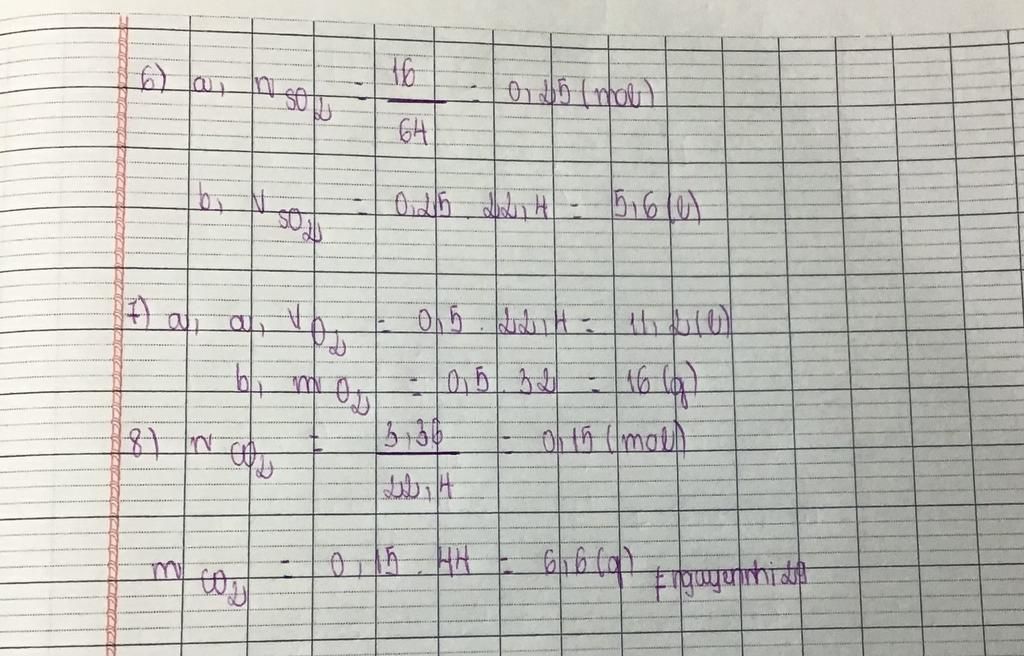 6) a, n SO2 = 16/64 = 0,25 (mol)
b, V SO2 = 0,25 . 22,4 = 5,6 (l)
7) a, a, V O2 = 0,5 . 22,4 = 11,2 (l)
b, m O2 = 0,5 . 32 = 16 (g)
8) n CO2 = 3,36/22,4 = 0,15 (mol)
m CO2 = 0,15 . 44 = 6,6 (g)